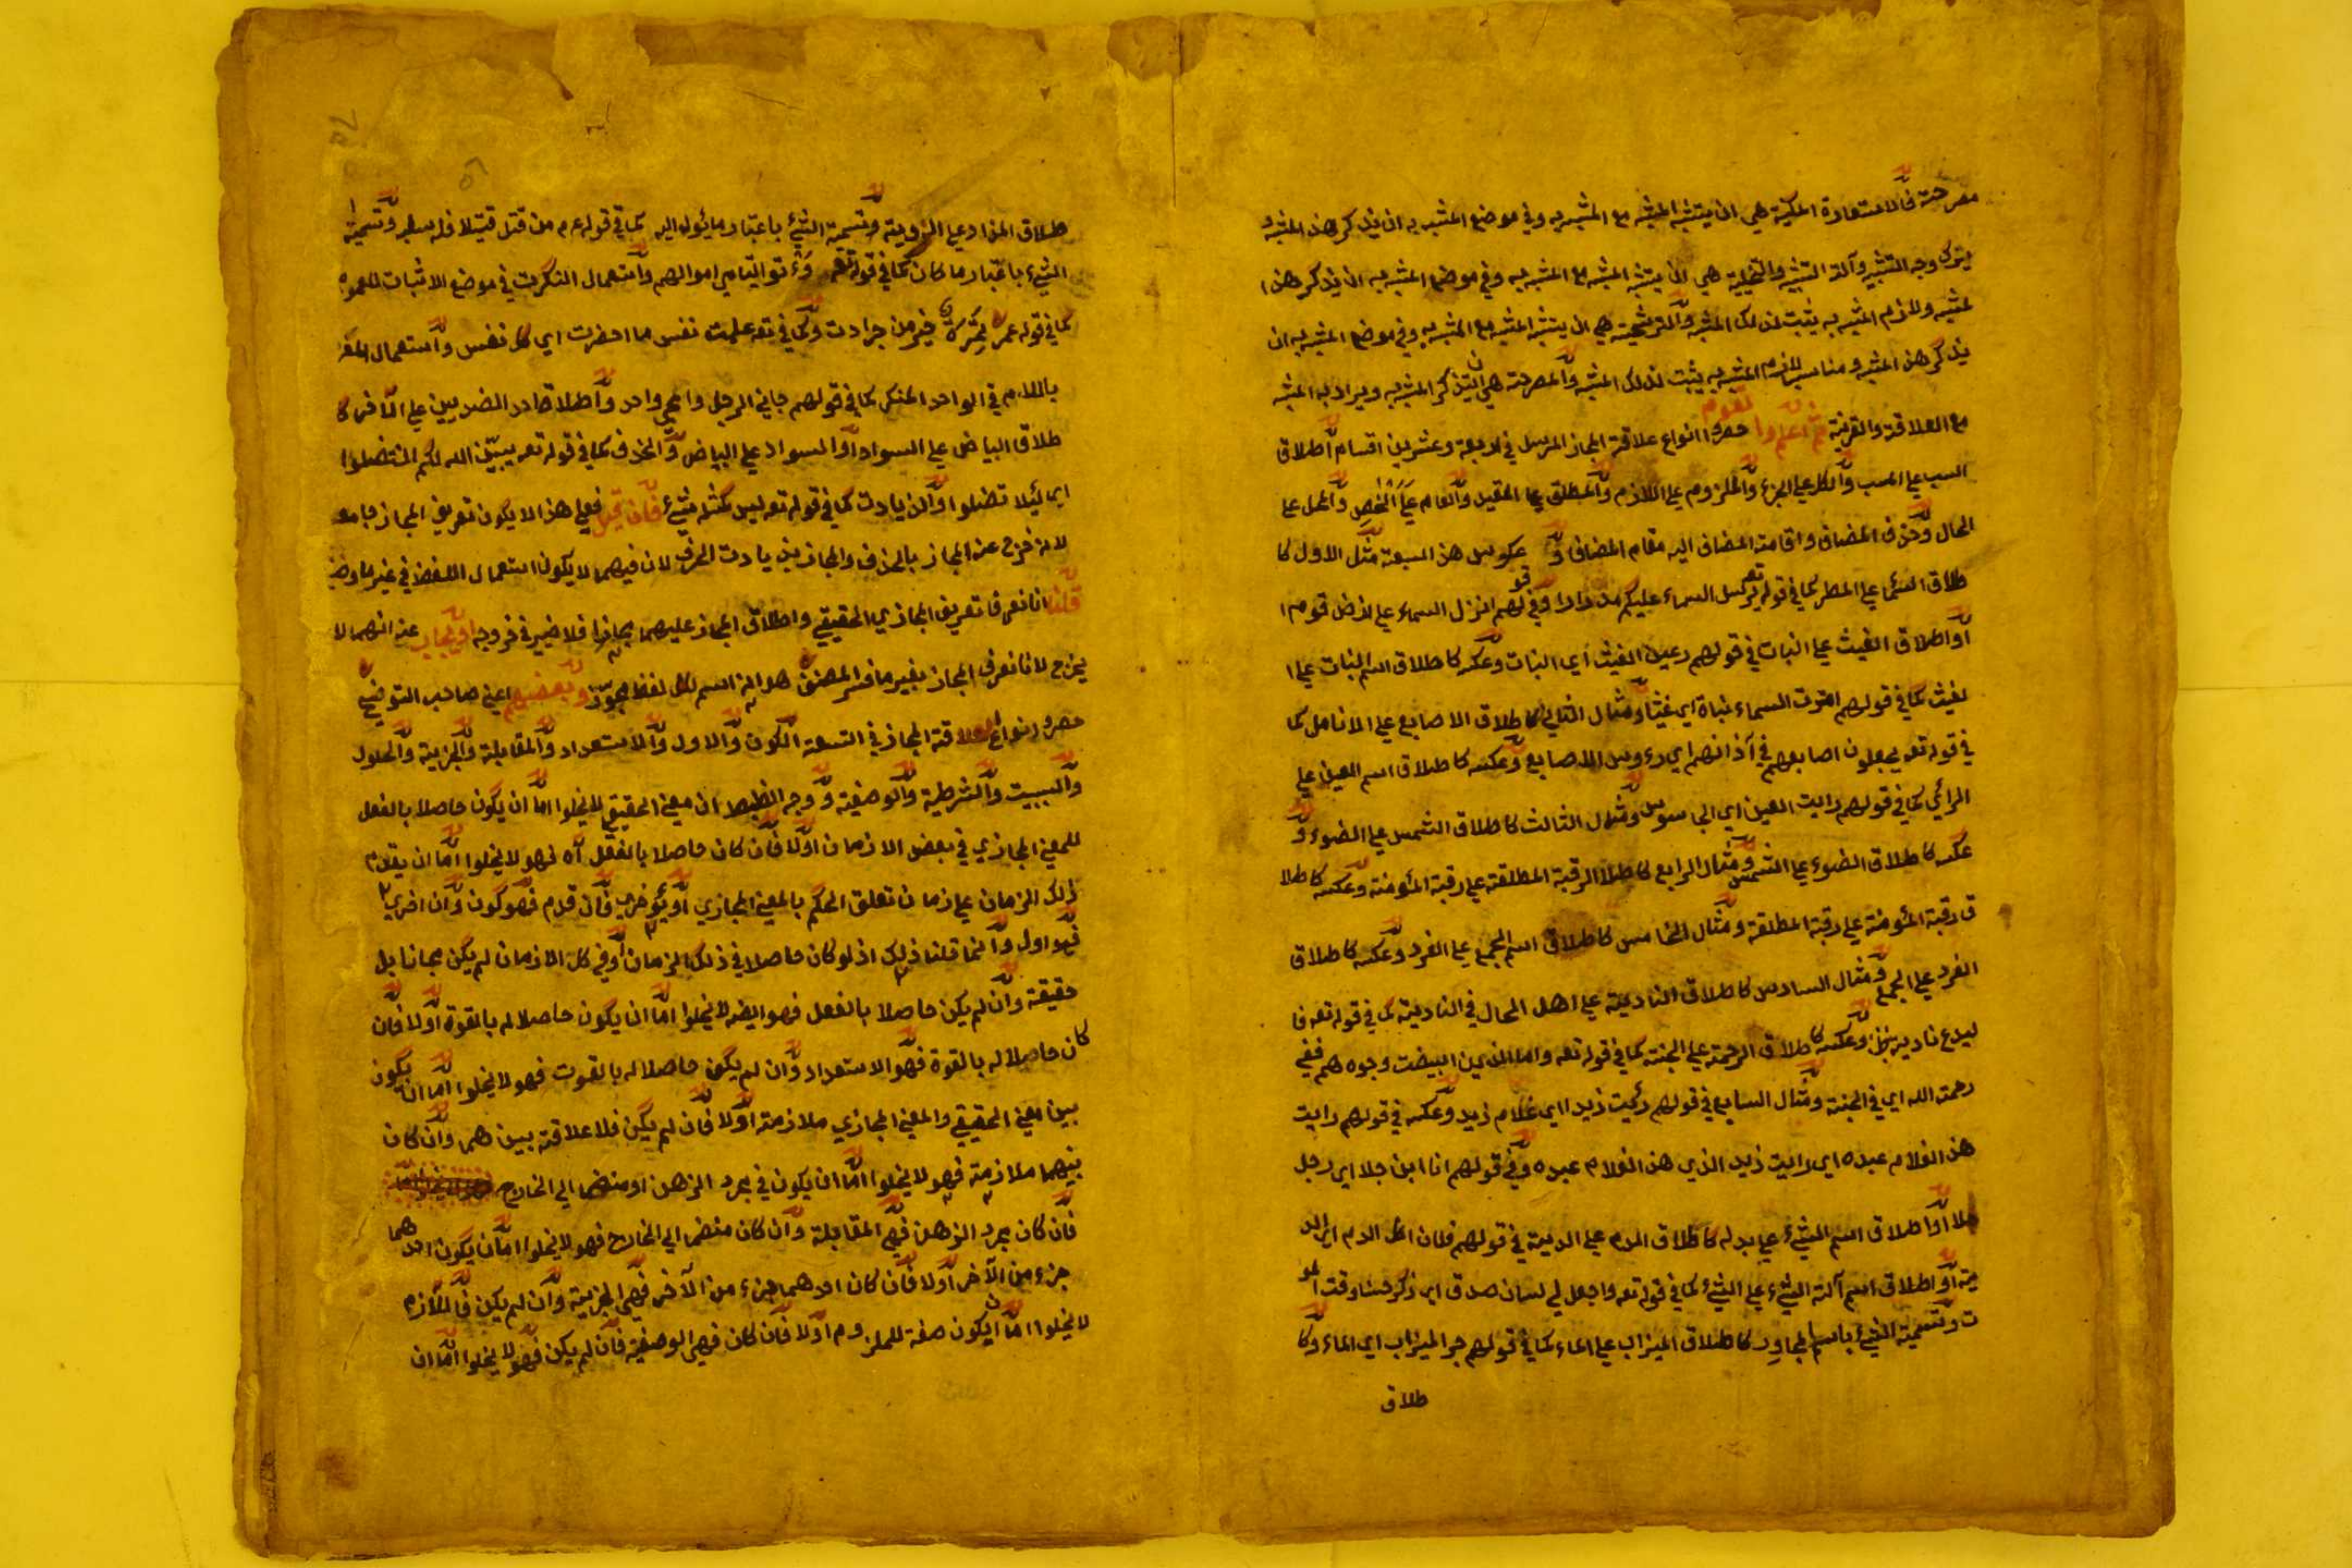 مصرحة فالاستعارة المكنية هي ان يشبه المشبه مع المشبه به وفي موضع المشبه به ان يذكر هذا المشبه و
يترك وجه التشبيه وآلة التشبيه والتخيلية هي ان يشبه المشبه مع المشبه به وفي موضع المشبه به ان يذكر هذا ا
لمشبه ولازم المشبه به يثبت لذلك المشبه والترشحية هي ان يشبه المشبه مع المشبه به وفي موضع المشبه به ان
يذكر هذا المشبه ومناسب للازم المشبه به يثبت لذلك المشبه والمصرحة هي ان يذكر المشبه به ويراد به المشبه
مع العلاقة والقرينة ثم اعلم القوم حصروا انواع علاقة المجاز المرسل في اربعة وعشرين اقسام اطلاق
السبب علي المسبب والكل علي الجزء والملزوم علي اللازم والمطلق علي المقيد والعام علي الخص والمحل علي
الحال وحذف المضاف واقامة المضاف اليه مقام المضاف و عكوس هذا السبعة مثل الاول كا
طلاق السماء علي المطر كما في قوله تعه يرسل السماء عليكم مدرارا وفي قولهم انزل السماء علي ارض قوم ا
او اطلاق الغيث علي النبات في قولهم رعين الغيث اي النبات وعكسه كاطلاق اسم النبات علي ا
لغيث كما في قولهم امطرت السماء نباتا اي غيثا ومثال الثاني كاطلاق الاصابع علي الانامل كما
في قوله تعه يجعلون اصابعهم في آذانهم اي رءوس الاصابع وعكسه كاطلاق اسم العين علي
الرائي كما في قولهم رايت العين اي الجاسوس ومثال الثالث كاطلاق الشمس علي الضوء و
عكسه كاطلاق الضوء علي الشمس ومثال الرابع كاطلاق الرقبة المطلقة علي رقبة المؤمنة وعكسه كاطلا
ق رقبة المؤمنة علي رقبة المطلقة ومثال الخامس كاطلاق اسم الجمع علي الفرد وعكسه كاطلاق
الفرد علي الجمع ومثال السادس كاطلاق النادية علي اهل المحال في النادية كما في قوله تعه فا
ليدع ناديه وعكسه كاطلاق الرحمة علي الجنة كما في قوله تعه واما الذين ابيضت وجوههم ففي
رحمة الله اي في الجنة ومثال السابع في قولهم رئيت زيدا اي غلام زيد وعكسه في قولهم رايت
هذا الغلام عبده اي رايت زيد الذي هذا الغلام عبده وفي قولهم انا ابن جلا اي رجل
جلا او اطلاق اسم الشيء علي بدله كاطلاق الدم علي الدية في قولهم فلان اكل الدم اي الد
ية او اطلاق اسم آلة الشيء علي الشيء كما في قوله تعه واجعل لي لسان صدق اي ذكر حسنا
ت وتسمية الشيء باسم المجاور كاطلاق الميزاب علي الماء كما في قولهم جرا الميزاب اي الماء وكا
طلاق
طلاق المزاد علي الزوية وتسمية الشيء باعتبار ما يئول اليه كما في قوله عم من قتل قتيلا فله سلبه وتسمية ا
الشيء باعتبار ما كان كما في قوله تعه وءتو اليتامي اموالهم واستعمال النكرت في موضع الاثبات للعموم
كما في قوله عمر تمرة خير من جرادت وكما في تعه علمت نفس ما احضرت اي كل نفس واستعمال المعر
باللام في الواحد المنكر كما في قولهم جاني الرجل واي واحد واطلاق احد الضدين علي الآخر كا
طلاق البياض علي السواد او السواد علي البياض والحذف كما في قوله تعه يبين الله لكم ان تضلوا
اي لئلا تضلوا والزيادت كما في قوله تعه ليس كمثله شيء فان قيل فعلي هذا لا يكون تعريف المجاز جامعه
لانه خرج عنه المجاز بالحذف والمجاز بزيادت الحرف لان فيهما لا يكون استعمال اللفظ في غير ما وضع
قلنا انا نعرف تعريف المجازي الحقيقي واطلاق المجاز عليهما مجازا فلا ضير في خروجه او نجاب عنه انهما لا
يخرج لانا نعرف المجاز بغير ما فسر المصنف هو انه اسم لكل لفظ تجوز وبعضهم اعني صاحب التوضيح
حصر انواع العلاقة المجاز في التسعة الكون والاول والاستعداد والمقابلة والجزئية والحلول
والسببيت والشرطية والوصفية ووجه الضبط ان معني الحقيقي لا يخلوا اما ان يكون حاصلا بالفعل
للمعني المجازي في بعض الازمان اولا فان كان حاصلا بالفعل آه فهو لا يخلوا اما ان يقدم
ذلك الزمان علي زمان تعلق الحكم بالمعني المجازي او يؤخر فان قدم فهو كون وان اخري
فهو اول وانما قلنا ذلك اذ لو كان حاصلا في ذلك الزمان او في كل الازمان لم يكن مجازا بل
حقيقة وان لم يكن حاصلا بالفعل فهو ايضه لا يخلوا اما ان يكون حاصلا له بالقوة اولا فان
كان حاصلا له بالقوة فهو الاستعداد وان لم يكن حاصلا له بالقوت فهو لا يخلوا اما ان يكون
بين معني الحقيقي والمعني المجازي ملازمة اولا فان لم يكن فلا علاقة بينهما وان كان
بينهما ملازمة فهو لا يخلوا اما ان يكون في مجرد الزهن او منضما الي الخارج
فان كان مجرد الزهن فهي المقابلة وان كان منضما الي الخارج فهو لا يخلوا اما ان يكون احدهما
جزء من الآخر اولا فان كان احدهما جزء من الآخر فهي الجزئية وان لم يكن فاللازم
لا يخلوا اما ان يكون صفة للملزوم اولا فان كان فهي الوصفية فان لم يكن فهو لا يخلوا اما ان